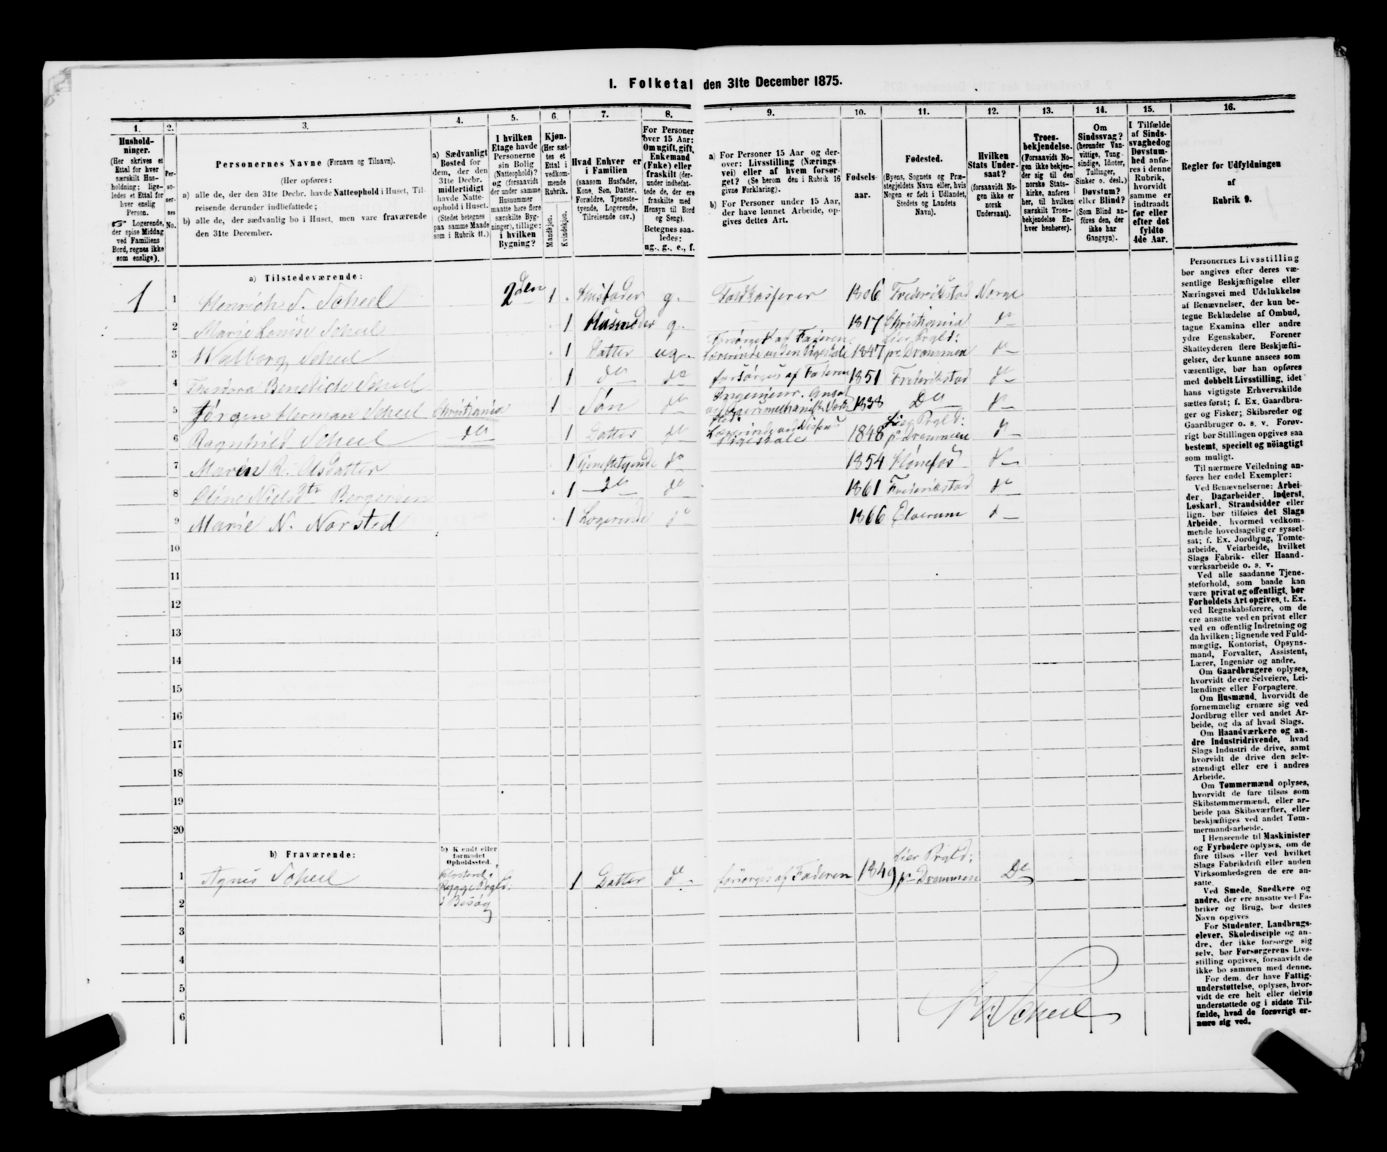 1. Folketal den 31te December 1875.
1.
Hushold-
ninger.
(Her skrives et
Ettal for hver
særskilt Hus-
holdning; lige-
ledes et Ettal for
hver enslig
Person.
Logerende,
der spise Middag
ved Familiens
Bord, regnes ikke
som enslige).
2.
Per-
so-
ner-
nes
No.
3.
Personernes Navne (Fornavn og Tilnavn).
(Her opføres:
a) alle de, der den 31te Decbr. havde Natteophold i Huset, Til-
reisende derunder indbefattede;
b) alle de, der sædvanlig bo i Huset, men vare fraværende
den 31te December.
4.
a) Sædvanligt
Bosted for
dem, der den
31te Decbr.
midlertidigt
havde Natte-
ophold i Huset.
(Stedet betegnes
paa samme Maade
som i Rubrik 11.)
5.
I hvilken
Etage havde
Personerne
sin Bolig
(Natteophold)?
og (forsaavidt
der under samme
Husnummer
maatte høre flere
særskilte Byg-
ninger), tillige:
i hvilken
Bygning?
6.
Kjøn.
(Her sæt-
tes et
Ettal i
vedkom-
mende
Rubrik.
Mandkjøn.
Kvindekjøn.
7.
Hvad Enhver er
i Familien
(saasom Husfader,
Kone, Søn, Datter,
Forældre, Tjeneste-
tyende, Logerende,
Tilreisende osv.)
8.
For Personer
over 15 Aar:
Om ugift, gift,
Enkemand
(Enke) eller
fraskilt (der-
under indbefat-
tede de, der ere
fraskilte med
Hensyn til Bord
og Seng).
Betegnes saa-
ledes:
ug., g., e., f.
9.
a) For Personer 15 Aar og der-
over: Livsstilling (Nærings-
vei) eller af hvem forsør-
get? (Se herom den i Rubrik 16
givne Forklaring).
b) For Personer under 15 Aar,
der have lønnet Arbeide, op-
gives dettes Art.
10.
Fødsels-
aar.
11.
Fødested.
(Byens, Sognets og Præ-
stegjeldets Navn eller, hvis
Nogen er født i Udlandet,
Stedets og Landets
Navn).
12.
Hvilken
Stats Under-
saat?
(forsaavidt No-
gen ikke er
norsk
Undersaat).
13.
Troes-
bekjendelse.
(Forsaavidt No-
gen ikke bekjen-
der sig til den
norske Stats-
kirke, anføres
her, til hvilken
særskilt Troes-
bekjendelse En-
hver henhører).
14.
Om
Sindssvag?
(herunder Van-
vittige, Tung-
sindige, Idioter,
Tullinger,
Sinker o. desl.)
Døvstum?
eller Blind?
(Som Blind an-
føres den, der
ikke har
Gangsyn).
15.
I Tilfælde
af Sinds-
svaghed og
Døvstum-
hed anfø-
res i denne
Rubrik,
hvorvidt
samme er
indtraadt
før eller
efter det
fyldte
4de Aar.
16.
Regler for Udfyldningen
af
Rubrik 9.
a) Tilstedeværende:
1 1 Henrich T. Scheel 2den 1 Husfader g. Toldkasserer 1806 Frederikstad Norge
2 Marie Louise Scheel 1 Husmoder g. 1817 Christiania do
3 Valborg Scheel 1 Datter ug. Forsørget af Faderen Lærerinde ved en Pigeskole 1847 Lier Prgld: pr Drammen do
4 Theodora Benedicte Scheel 1 do do forsørges af Faderen 1851 Frederikstad do
5 Jørgen Herman Scheel Christiania 1 Søn do Ingenieur 1838 Do do
6 Ragnhild Scheel do 1 Datter do Lærerinde Pigeskole 1848 Lier Prgld: pr Drammen do
7 Maren K. Olsdatter 1 Tjenestetyende do 1854 Hønefos do
8 Oline Niels Dtr Bergersen 1 do do 1861 Frederikstad do
9 Marie N. Norsted 1 Logerende do 1866 Elverum do
10
11
12
13
14
15
16
17
18
19
20
b) Fraværende:
b) Kjendt eller
formodet
Opholdssted.
1 Agnes Scheel Rygge Prgld. i Besøg 1 Datter do forsørges af Faderen 1849 Lier Prgld: pr Drammen Do
2
3
4
5
6
Scheel
Personernes Livsstilling
bør angives efter deres væ-
sentlige Beskjæftigelse eller
Næringsvei med Udelukkelse
af Benævnelser, der kun be-
tegne Beklædelse af Ombud,
tagne Examina eller andre
ydre Egenskaber. Forener
Skatteyderen flere Beskjæfti-
gelser, der kunne ansees som
væsentlige, bør han opføres
med dobbelt Livsstilling, idet
hans vigtigste Erhvervskilde
sættes først; f. Ex. Gaardbru-
ger og Fisker; Skibsreder og
Gaardbruger o. s. v. Forøv-
rigt bør Stillingen opgives saa
bestemt, specielt og nøiagtigt
som muligt.
Til nærmere Veiledning an-
føres her endel Exempler:
Ved Benævnelserne: Arbei-
der, Dagarbeider, Inderst,
Løskarl, Strandsidder eller
lign. bør tilføies det Slags
Arbeide, hvormed vedkom-
mende hovedsagelig er syssel-
sat; f. Ex. Jordbrug, Tomte-
arbeide, Veiarbeide, hvilket
Slags Fabrik- eller Haand-
værksarbeide o. s. v.
Ved alle saadanne Tjene-
steforhold, som baade kan
være privat og offentligt, bør
Forholdets Art opgives, f. Ex.
ved Regnskabsførere, om de
ere ansatte ved en privat eller
ved en offentlig Indretning og
da hvilken; lignende ved Fuld-
mægtig, Kontorist, Opsyns-
mand, Forvalter, Assistent,
Lærer, Ingeniør og andre.
Om Gaardbrugere oplyses,
hvorvidt de ere Selveiere, Lei-
lændinge eller Forpagtere.
Om Husmænd, hvorvidt de
fornemmelig ernære sig ved
Jordbrug eller ved andet Ar-
beide, og da af hvad Slags.
Om Haandværkere og an-
dre Industridrivende, hvad
Slags Industri de drive, samt
hvorvidt de drive den selv-
stændigt eller ere i andres
Arbeide.
Om Tømmermænd oplyses,
hvorvidt de fare tilsøs som
Skibstømmermænd, eller ar-
beide paa Skibsværfter, eller
beskjæftiges ved andet Tøm-
mermandsarbeide.
I Henseende til Maskinister
og Fyrbødere oplyses, om de
fare tilsøs eller ved hvilket
Slags Fabrikdrift eller anden
Virksomhedsgren de ere an-
satte.
Ved Smede, Snedkere og
andre, der ere ansatte ved Fa-
briker og Brug, bør dettes
Navn opgives
For Studenter, Landbrugs-
elever, Skoledisciple og an-
dre, der ikke forsørge sig
selv, bør Forsørgerens Livs-
stilling opgives, forsaavidt de
ikke bo sammen med denne.
For dem, der have Fattig-
understøttelse, oplyses, hvor-
vidt de ere helt eller delvis
understøttede og i sidste Til-
fælde, hvad de forøvrigt er-
nære sig ved.